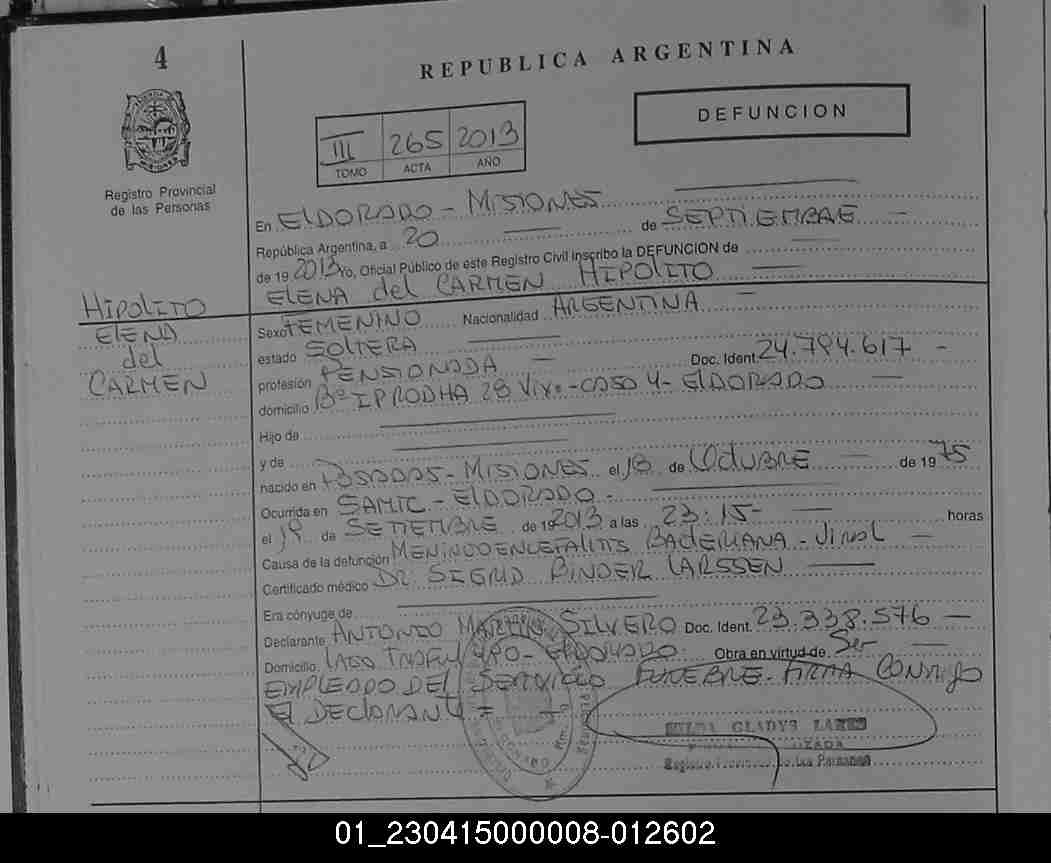 4
REPUBLICA ARGENTINA
DEFUNCION
III 265 2013
TOMO ACTA AÑO
Registro Provincial
de las Personas
En ELDORADO - MISIONES
República Argentina, a 20 de SEPTIEMBRE
de 19 2013 Yo, Oficial Público de este Registro Civil inscribo la DEFUNCION de
ELENA del CARMEN HIPOLITO
HIPOLITO
ELENA
del
CARMEN
Sexo FEMENINO Nacionalidad ARGENTINA
estado SOLTERA
profesión PENSIONADA Doc. Ident. 24.794.617
domicilio Bº IPRODHA 28 Viv. - CASA 4 - ELDORADO
Hijo de
y de
nacido en POSADAS - MISIONES el 18 de OCTUBRE de 19 75
Ocurrida en SAMIC - ELDORADO
el 19 de SETIEMBRE de 19 2013 a las 23:15 horas
Causa de la defunción MENINGOENCEFALITIS BACTERIANA - Viral
Certificado médico DR SIGRID BINDER LARSSEN
Era cónyuge de
Declarante ANTONIO MARTIN SILVERO Doc. Ident. 23.338.576
Domicilio LAGO - ELDORADO Obra en virtud de Ser
EMPLEADO DEL SERVICIO FUNEBRE - FIRMA CONMIGO
El DECLARANTE =
GLADYS
Registro de las Personas
01_230415000008-012602